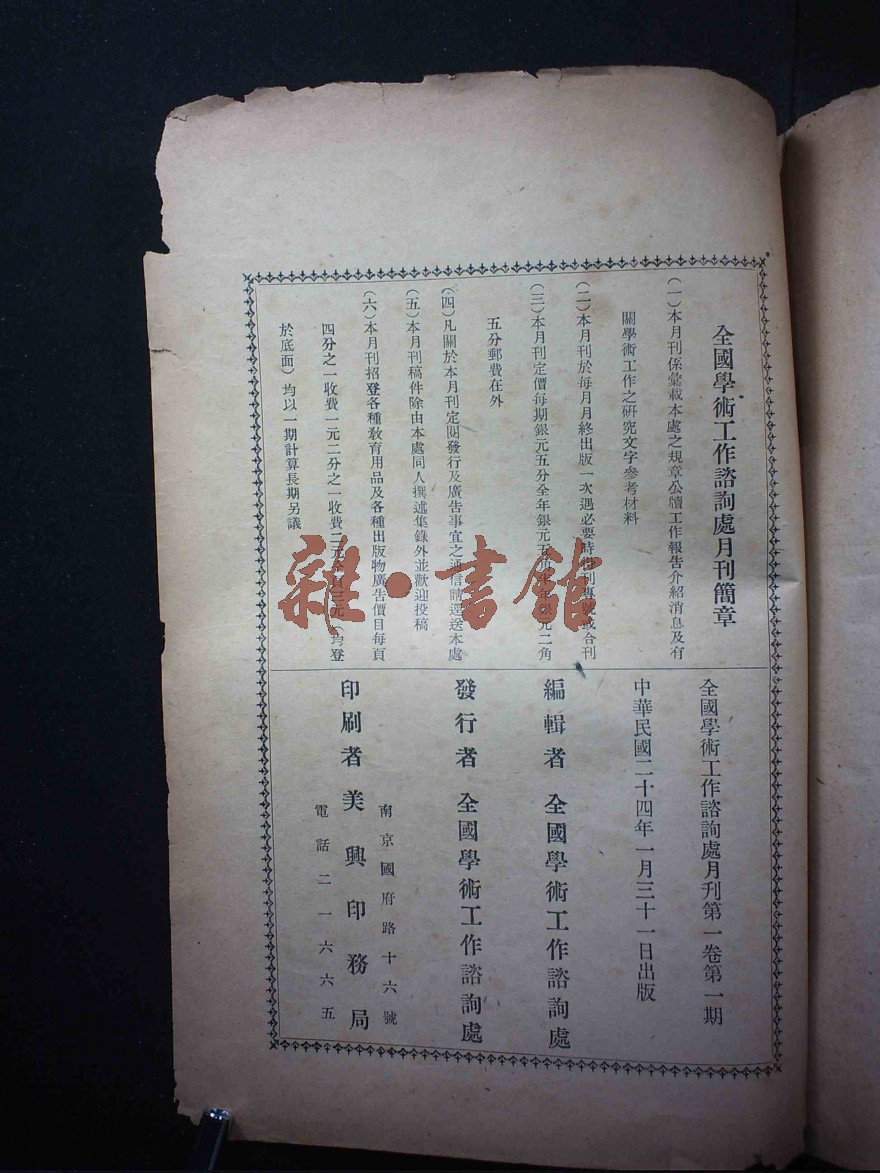 全國學術工作諮詢處月刊簡章
(一)本月刊係彙載本處之規章公牘工作報告介紹消息及有
關學術工作之研究文字參考材料
(二)本月刊於每月月終出版一次遇必要時得刊專號或合刊
(三)本月刊定價每期銀元五分全年銀元五角半年銀元二角
五分郵費在外
(四)凡關於本月刊定閱發行及廣告事宜之通信請逕送本處
(五)本月刊稿件除由本處同人撰述集錄外並歡迎投稿
(六)本月刊招登各種教育用品及各種出版物廣告價目每頁
四分之一收費一元二分之一收費二元全頁三元(均登
於底面)均以一期計算長期另議
全國學術工作諮詢處月刊第一卷第一期
中華民國二十四年一月三十一日出版
編輯者 全國學術工作諮詢處
發行者 全國學術工作諮詢處
南京國府路十六號
印刷者 美興印務局
電話二一六六五
雜·書館